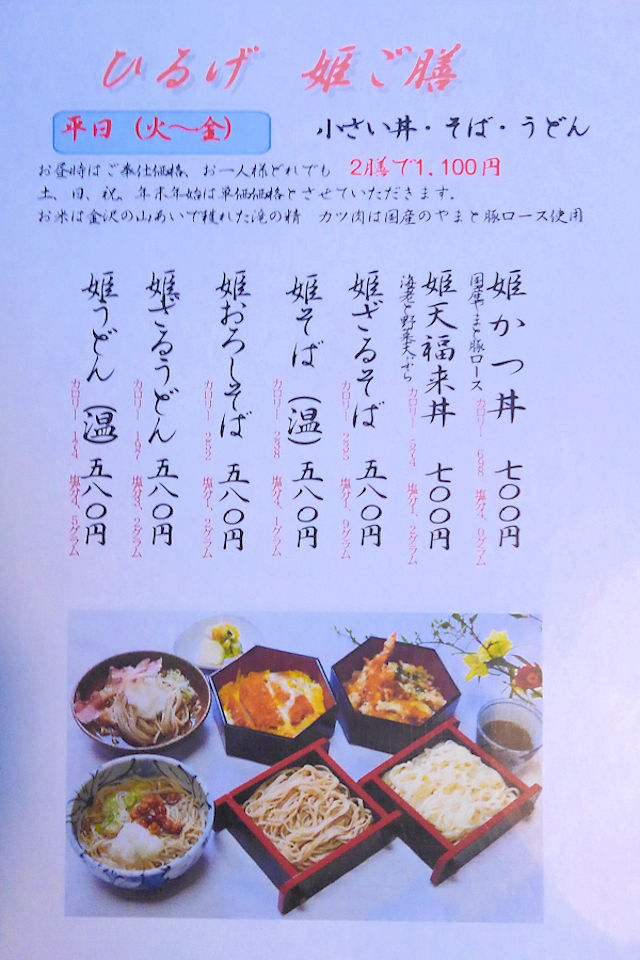 ひるげ 姫ご膳
平日（火～金） 小さい丼・そば・うどん
お昼時はご奉仕価格、お一人様どれでも 2膳で1,100円
土、日、祝、年末年始は単価価格とさせていただきます。
お米は金沢の山あいで穫れた滝の精 カツ肉は国産のやまと豚ロース使用
姫かつ丼 七〇〇円
国産やまと豚ロース
カロリー 塩分
姫天福来丼 七〇〇円
海老と野菜天ぷら
カロリー 574 塩分1，2グラム
姫ざるそば 五八〇円
カロリー 塩分1，9グラム
姫そば（温） 五八〇円
カロリー 塩分4，1グラム
姫おろしそば 五八〇円
カロリー 塩分1，2グラム
姫ざるうどん 五八〇円
カロリー 塩分3，2グラム
姫うどん（温） 五八〇円
カロリー 塩分4，5グラム